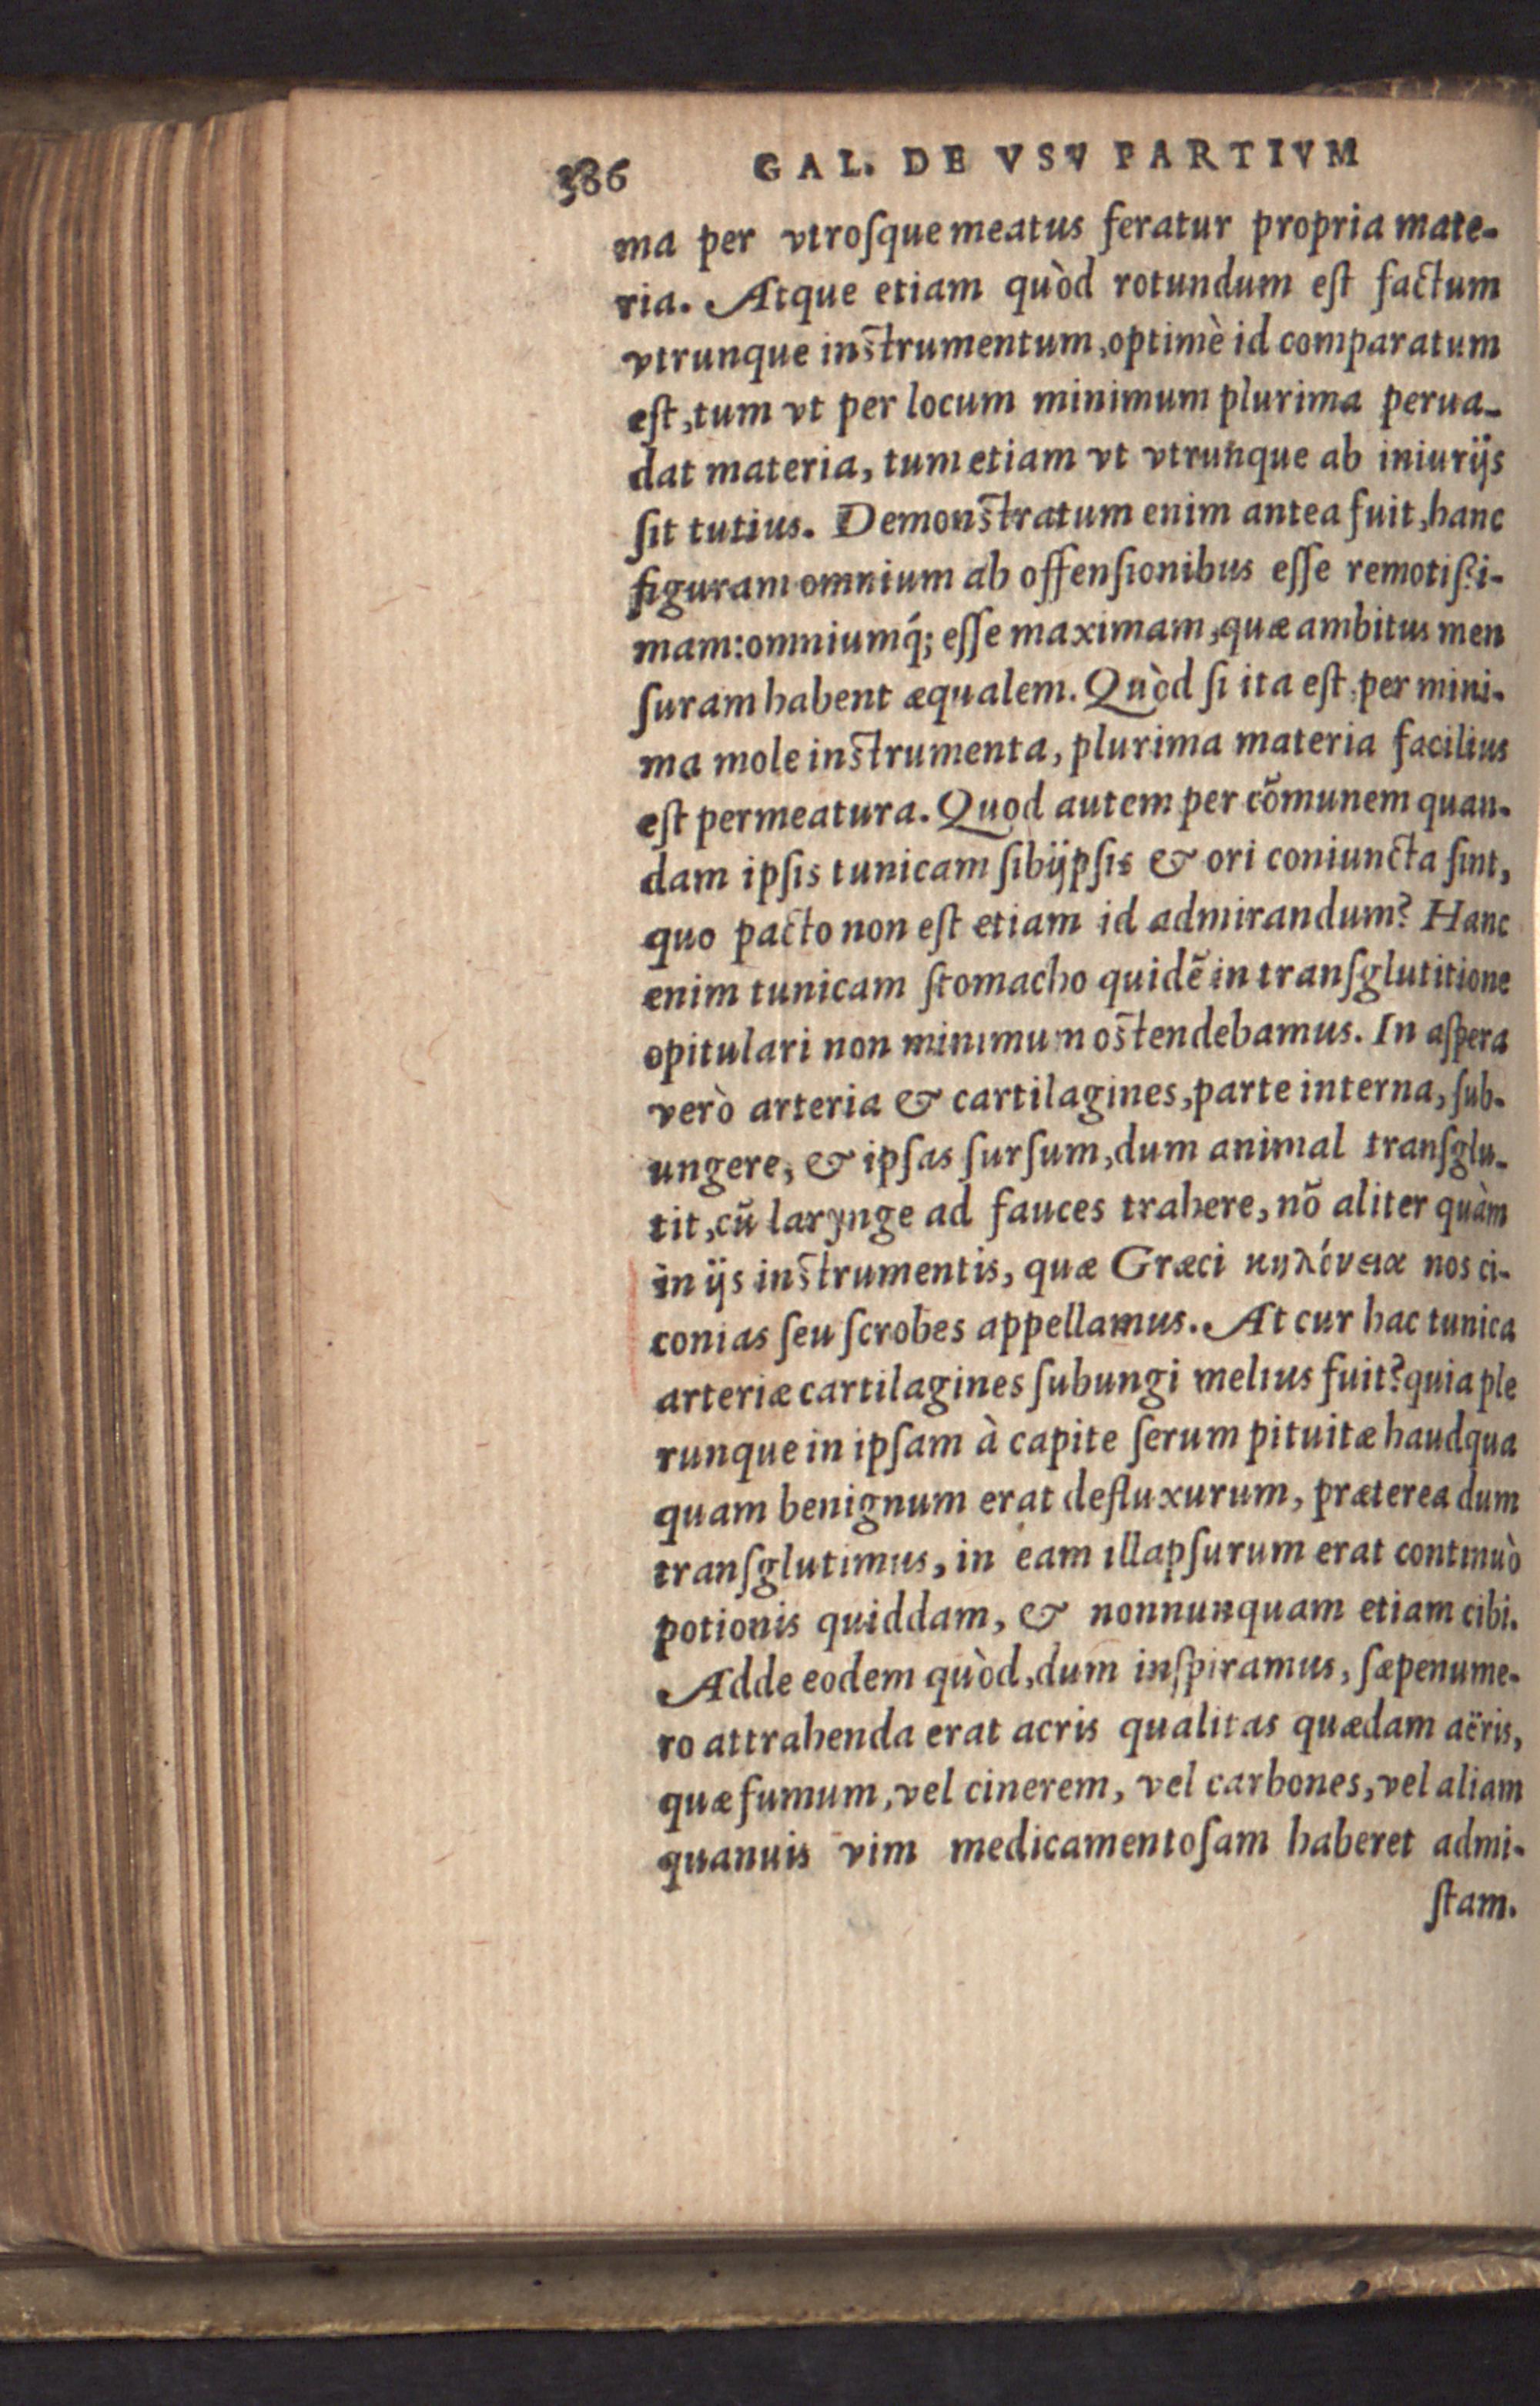 386 GAL. DE VSV PARTIVM
ma per vtroſque meatus feratur propria mate-
ria. Atque etiam quòd rotundum eſt factum
vtrunque inſtrumentum, optimè id comparatum
eſt, tum vt per locum minimum plurima perua-
dat materia, tum etiam vt vtrunque ab iniurijs
ſit tutius. Demonſtratum enim antea fuit, hanc
figuram omnium ab offenſionibus eſſe remotiſsi-
mam: omniumq́; eſſe maximam, quæ ambitus men
ſuram habent æqualem. Quòd ſi ita eſt, per mini-
ma mole inſtrumenta, plurima materia facilius
eſt permeatura. Quod autem per cõmunem quan-
dam ipſis tunicam ſibijpſis & ori coniuncta ſint,
quo pacto non eſt etiam id admirandum? Hanc
enim tunicam ſtomacho quidẽ in tranſglutitione
opitulari non minimum oſtendebamus. In aſpera
verò arteria & cartilagines, parte interna, ſub-
ungere, & ipſas ſurſum, dum animal tranſglu-
tit, cũ larynge ad fauces trahere, nõ aliter quàm
in ijs inſtrumentis, quæ Græci κηλόνεια nos ci-
conias ſeu ſcrobes appellamus. At cur hac tunica
arteriæ cartilagines ſubungi melius fuit? quia ple
runque in ipſam à capite ſerum pituitæ haudqua
quam benignum erat defluxurum, præterea dum
tranſglutimus, in eam illapſurum erat continuò
potionis quiddam, & nonnunquam etiam cibi.
Adde eodem quòd, dum inſpiramus, ſæpenume-
ro attrahenda erat acris qualitas quædam aëris,
quæ fumum, vel cinerem, vel carbones, vel aliam
quanuis vim medicamentoſam haberet admi-
ſtam.